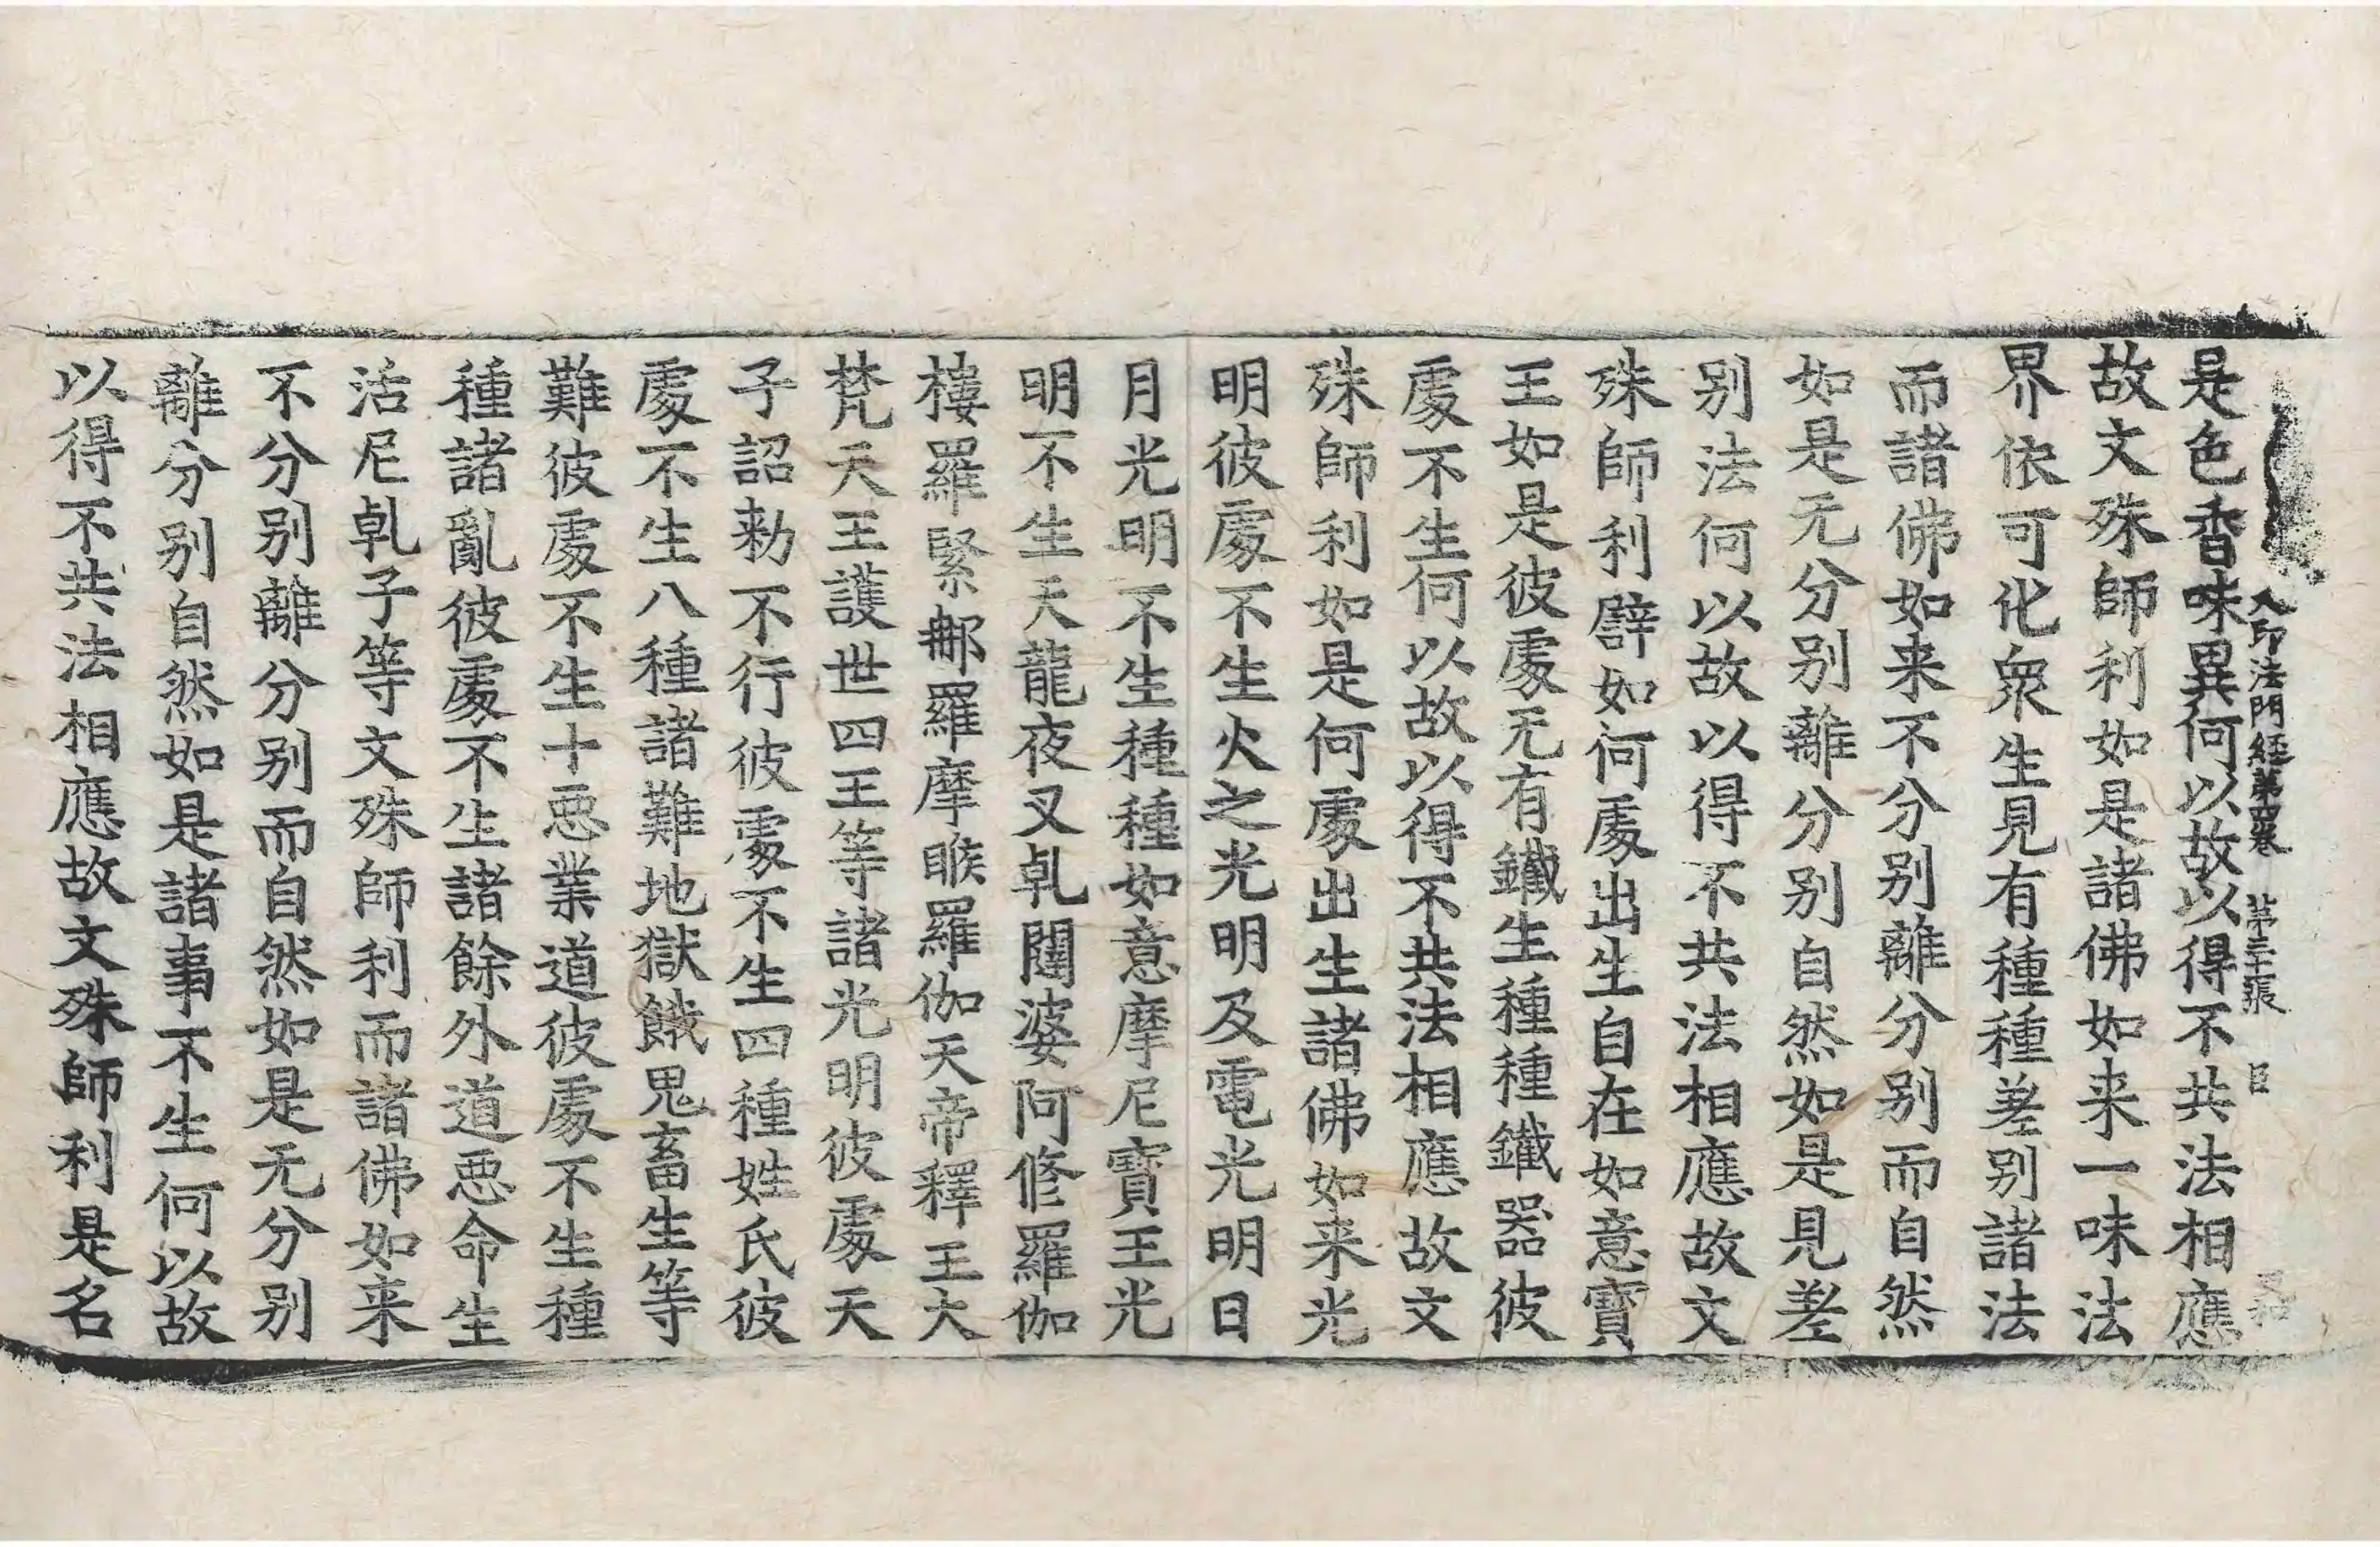 入印法門經第四卷 第三十張 臣
是色香味異何以故以得不共法相應
故文殊師利如是諸佛如来一味法
界依可化衆生見有種種差别諸法
而諸佛如来不分别離分别而自然
如是无分别離分别自然如是見差
别法何以故以得不共法相應故文
殊師利譬如何處出生自在如意寶
王如是彼處无有鐵生種種鐵器彼
處不生何以故以得不共法相應故文
殊師利如是何處出生諸佛如来光
明彼處不生火之光明及電光明日
月光明不生種種如意摩尼寶王光
明不生天龍夜叉乹闥婆阿修羅伽
樓羅緊那羅摩睺羅伽天帝釋王大
梵天王護世四王等諸光明彼處天
子詔勑不行彼處不生四種姓氏彼
處不生八種諸難地獄餓鬼畜生等
難彼處不生十惡業道彼處不生種
種諸亂彼處不生諸餘外道惡命生
活尼乹子等文殊師利而諸佛如来
不分别離分别而自然如是无分别
離分别自然如是諸事不生何以故
以得不共法相應故文殊師利是名